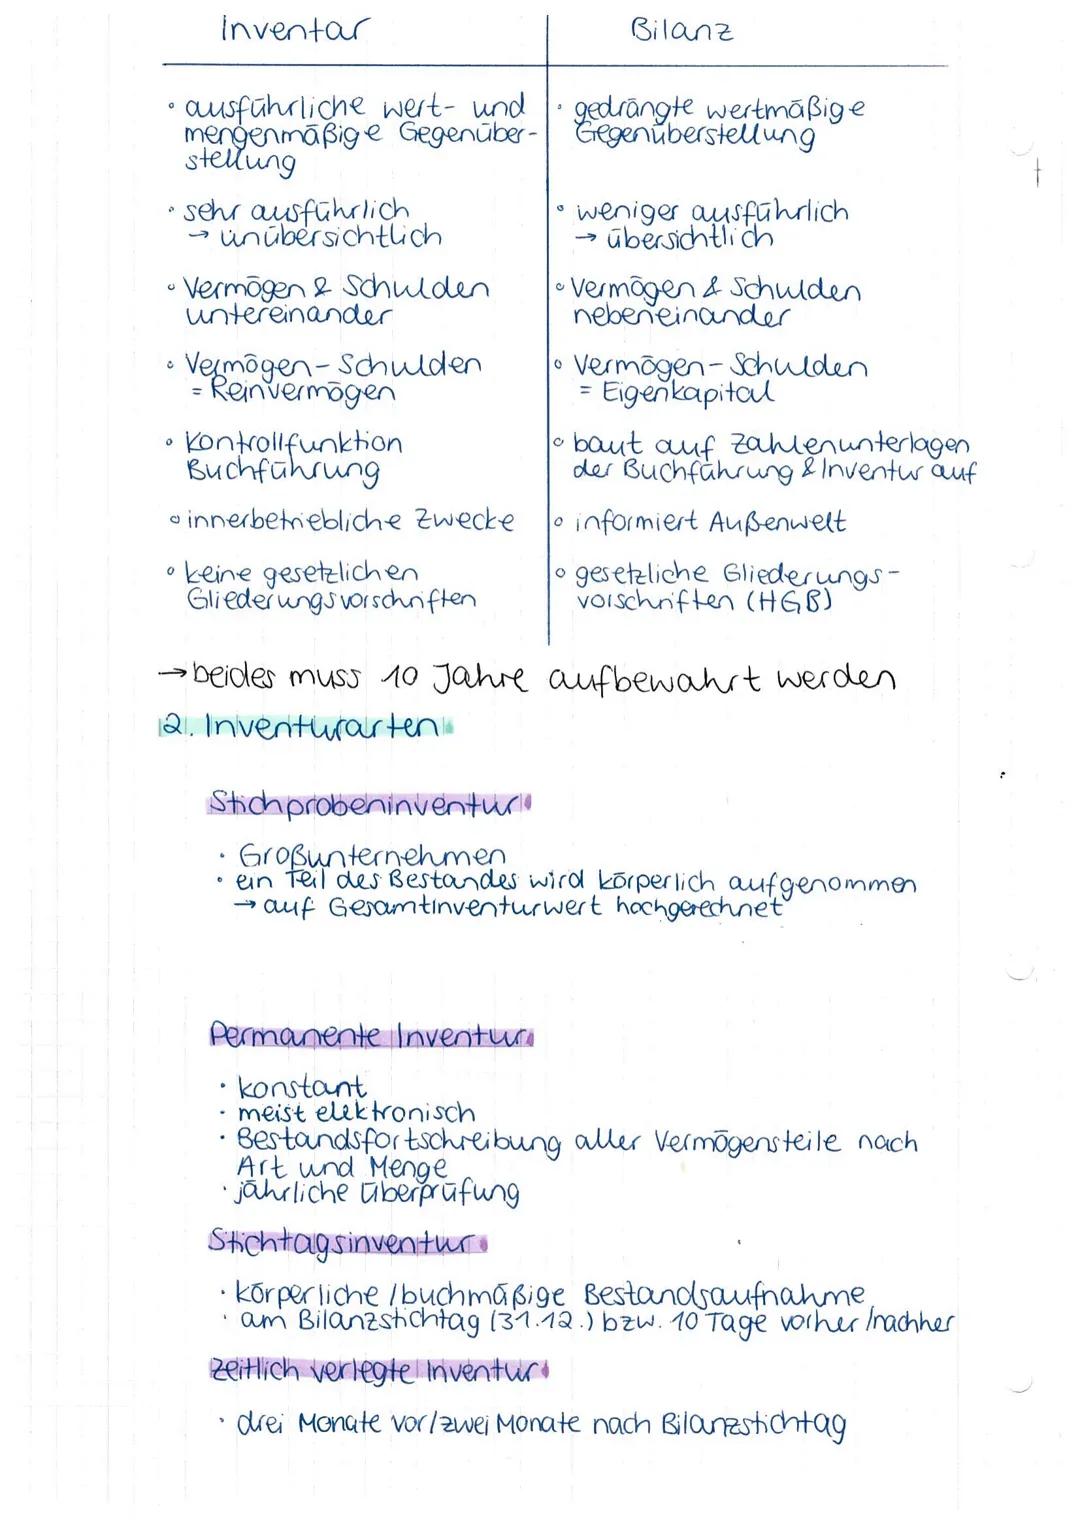 Inventar
Bilanz
• ausführliche wert- und
mengenmäßige Gegenüber-
stellung
• gedrängte wertmäßige
Gegenüberstellung
• sehr ausführlich
→ unübersichtlich
• weniger ausführlich
→ übersichtlich
• Vermögen & Schulden
untereinander
• Vermögen & Schulden
nebeneinander
• Vermögen - Schulden
= Reinvermögen
• Vermögen - Schulden
= Eigenkapital
• Kontrollfunktion
Buchführung
• baut auf Zahlenunterlagen
der Buchführung & Inventur auf
• innerbetriebliche Zwecke
• informiert Außenwelt
• keine gesetzlichen
Gliederungsvorschriften
• gesetzliche Gliederungs-
vorschriften (HGB)
→ beides muss 10 Jahre aufbewahrt werden
2. Inventurarten
Stichprobeninventur
• Großunternehmen
• ein Teil des Bestandes wird körperlich aufgenommen
→ auf Gesamtinventurwert hochgerechnet
Permanente Inventur
• konstant
• meist elektronisch
• Bestandsfortschreibung aller Vermögensteile nach
Art und Menge
• jährliche Überprüfung
Stichtagsinventur
• körperliche / buchmäßige Bestandsaufnahme
• am Bilanzstichtag (31.12.) bzw. 10 Tage vorher/nachher
zeitlich verlegte Inventur
• drei Monate vor/zwei Monate nach Bilanzstichtag